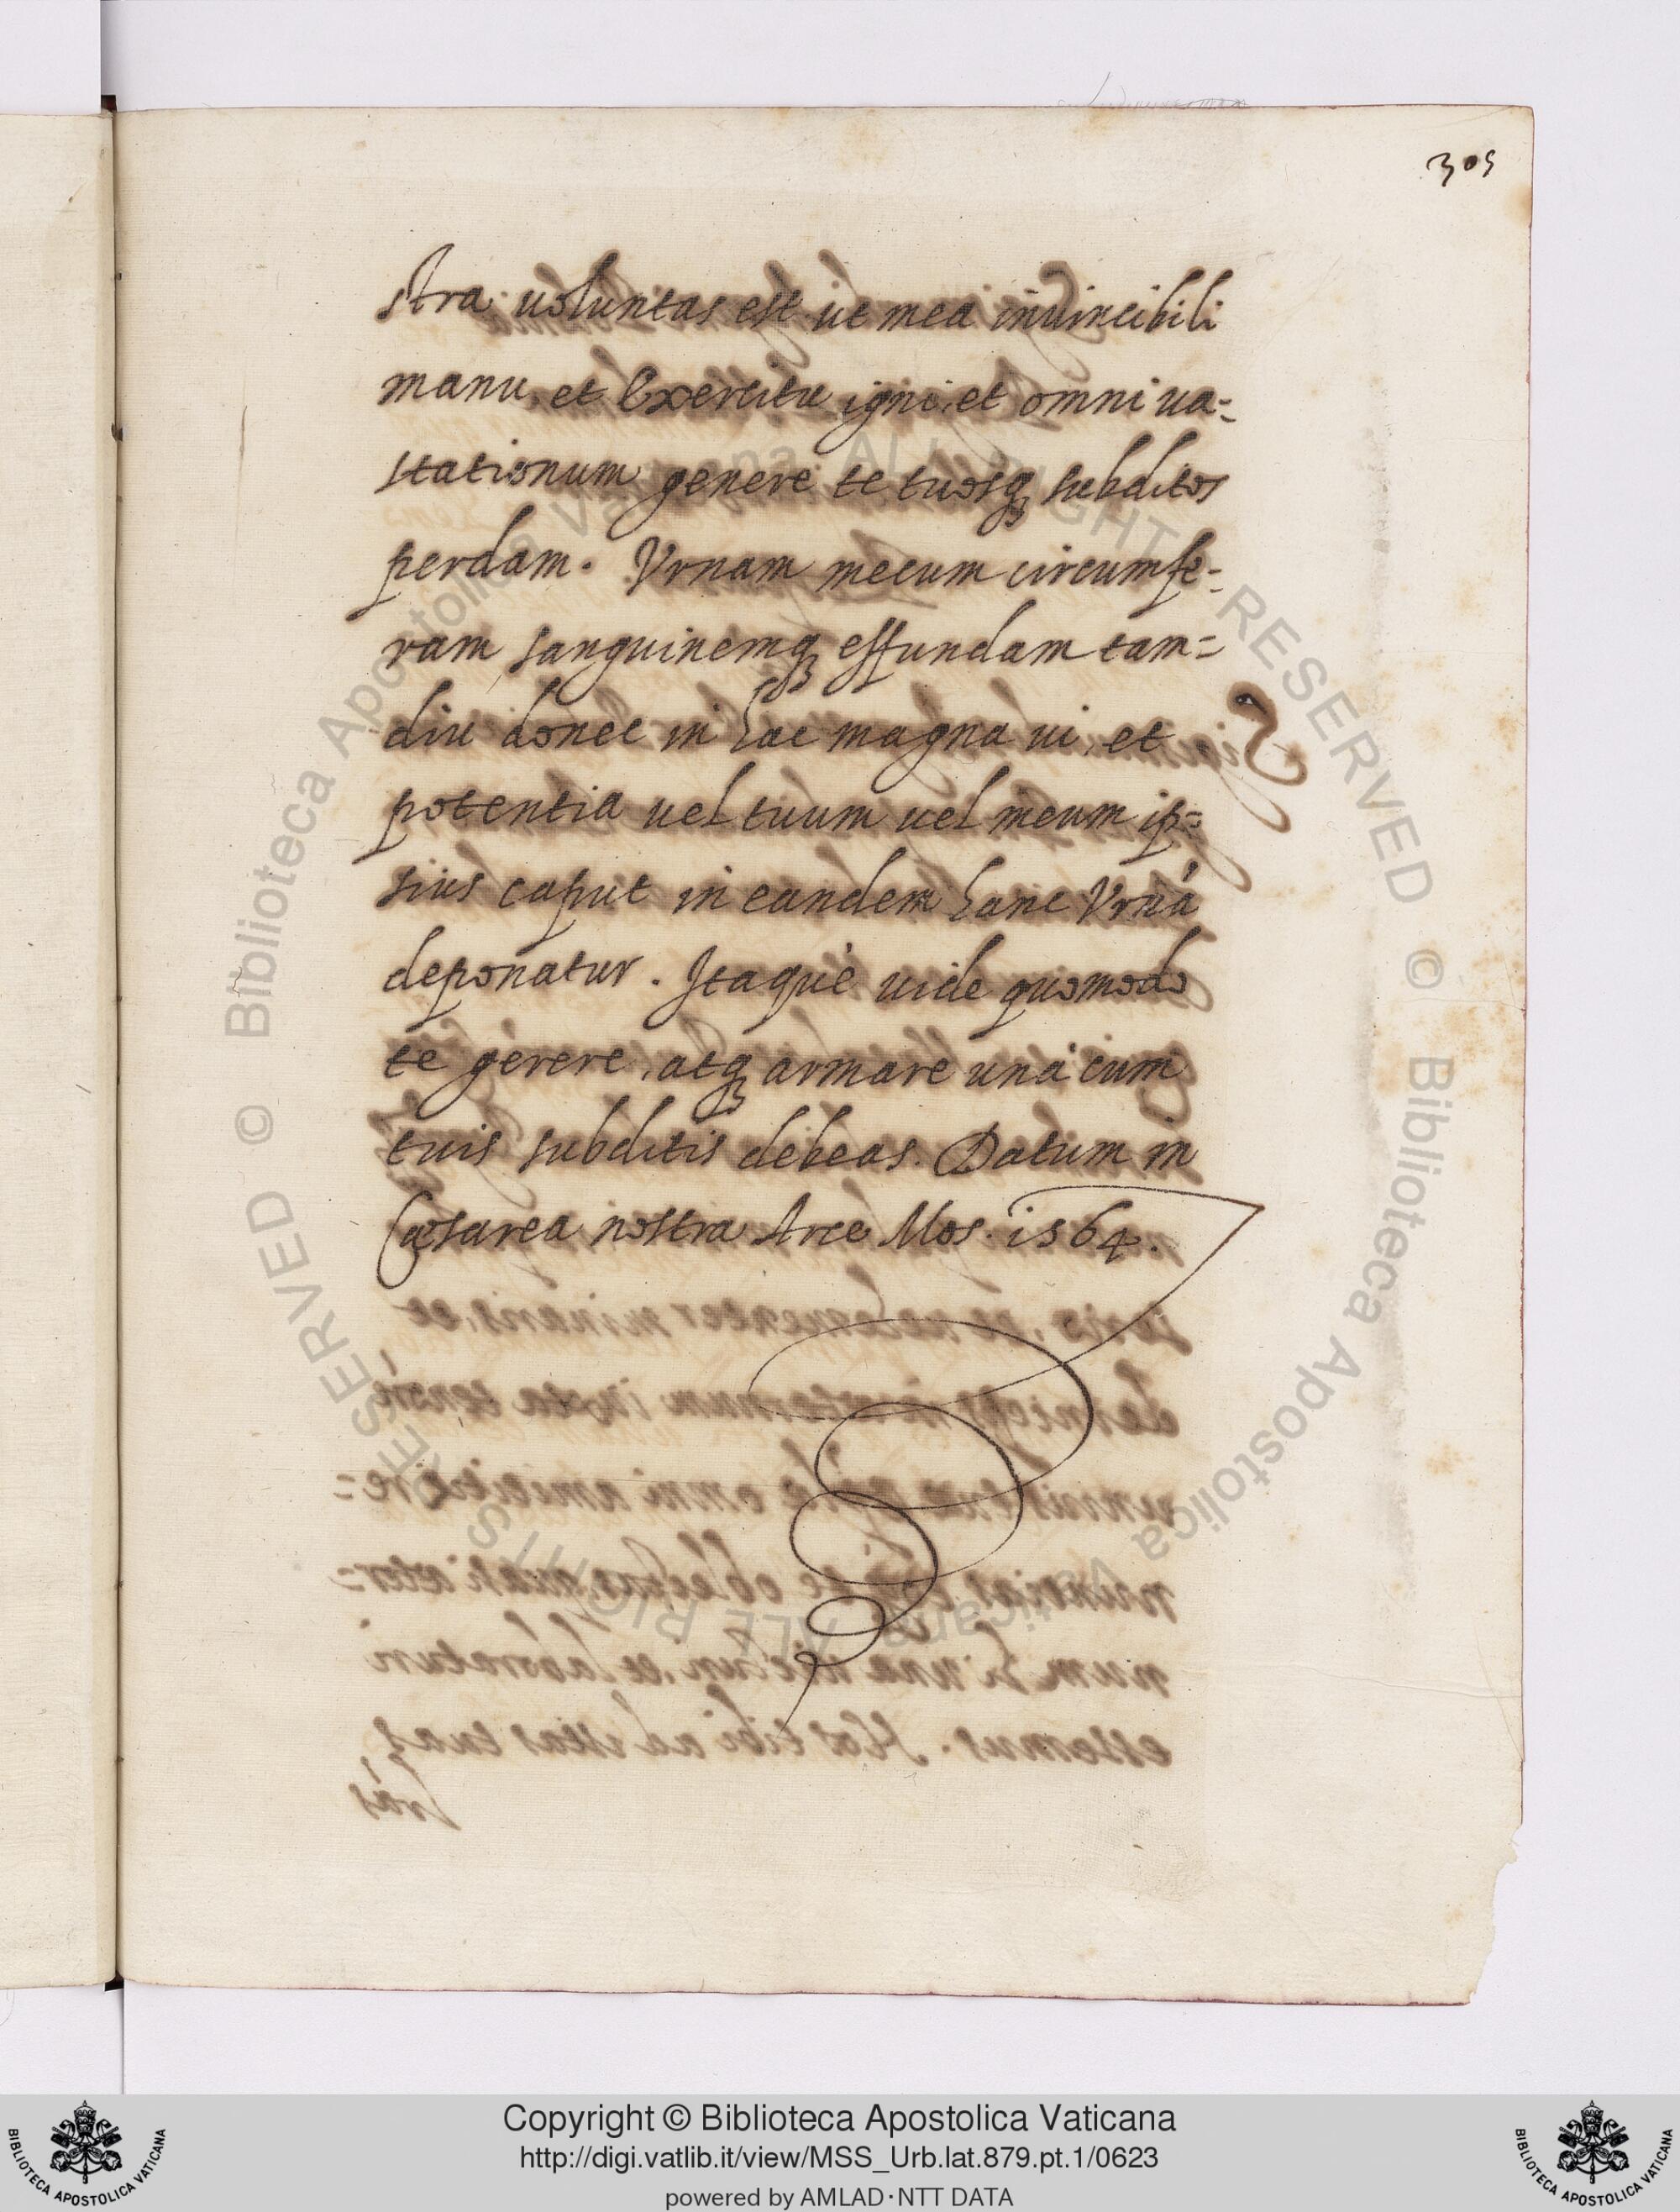 305
stra uoluntas est ut mea inuincibili
manu, et Exercitu igni, et omni ua=
stationum genere te tuosq subditos
perdam. Vrnam mecum circumfe=
ram sanguinemq effundam tam=
diu donec in hac magna ui, et
potentia uel tuum uel meum ip=
sius caput in eandem hanc Vrnã
deponatur. Itaque uide quomodo
te gerere, atq armare una cum
tuis subditis debeas. Datum in
Cæsarea nostra Arce Mos. 1564.
Copyright © Biblioteca Apostolica Vaticana
http://digi.vatlib.it/view/MSS_Urb.lat.879.pt.1/0623
powered by AMLAD·NTT DATA
BIBLIOTECA APOSTOLICA VATICANA
BIBLIOTECA APOSTOLICA VATICANA
© Biblioteca Apostolica Vaticana ALL RIGHTS RESERVED
© Biblioteca Apostolica Vaticana ALL RIGHTS RESERVED